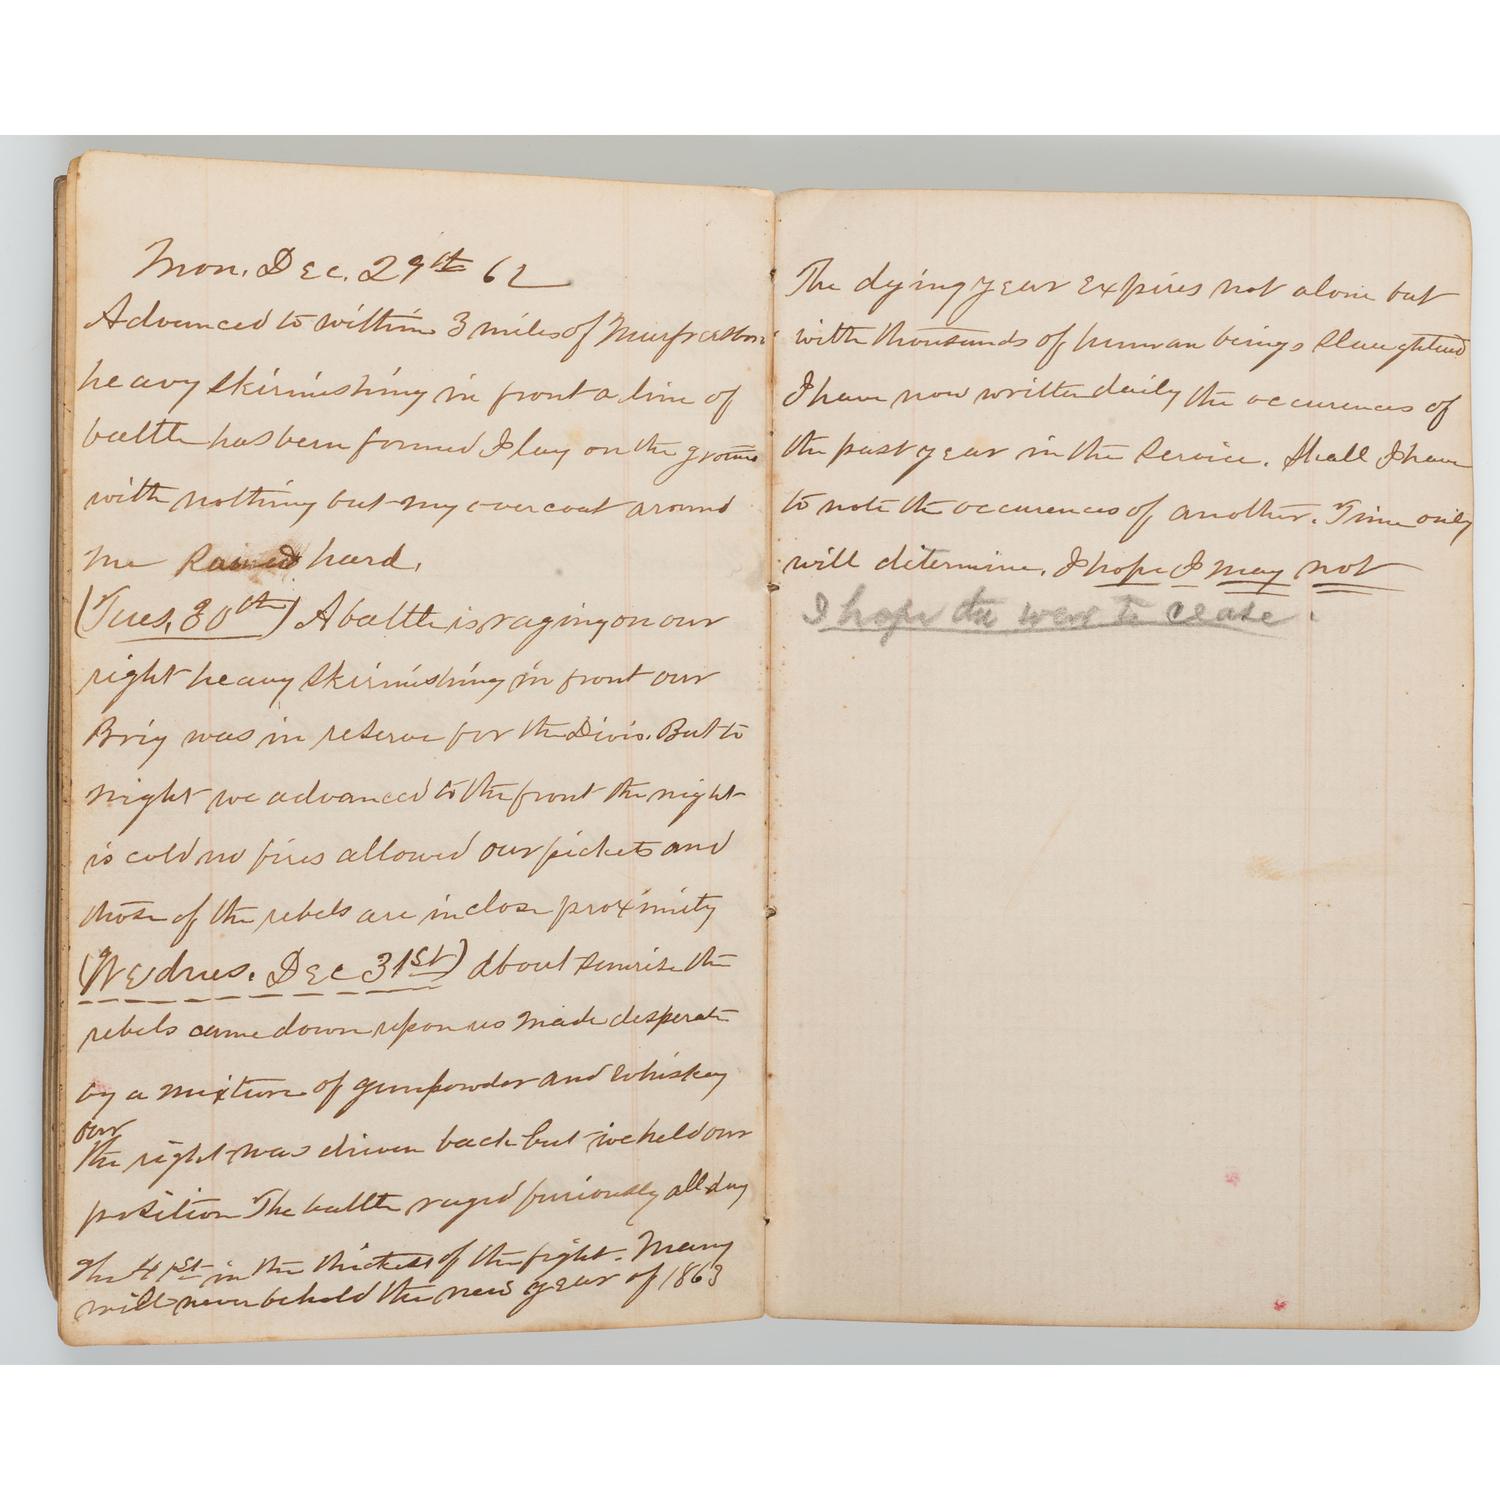 Mon. Dec. 29th 62
Advanced to within 3 miles of Murfresboro
heavy skirmishing in front a line of
battle has been formed I lay on the ground
with nothing but my overcoat around
me Rained hard.
(Tues, 30th) A battle is raging on our
right heavy skirmishing in front our
Brig was in reserve for the Divis. But to
night we advanced to the front the night
is cold no fires allowed our pickets and
those of the rebels are in close proximity
(Wednes. Dec 31st) about sunrise the
rebels came down upon us made desperate
by a mixture of gunpowder and whiskey
our
the right was driven back but we held our
position The battle raged furiously all day
The 41st in the thickest of the fight. Many
will never behold the new year of 1863
The dying year expires not alone but
with thousands of human beings slaughtered
I have now written daily the occurences of
the past year in the service. Shall I have
to note the occurences of another. Time only
will determine. I hope I may not
I hope the war to cease.